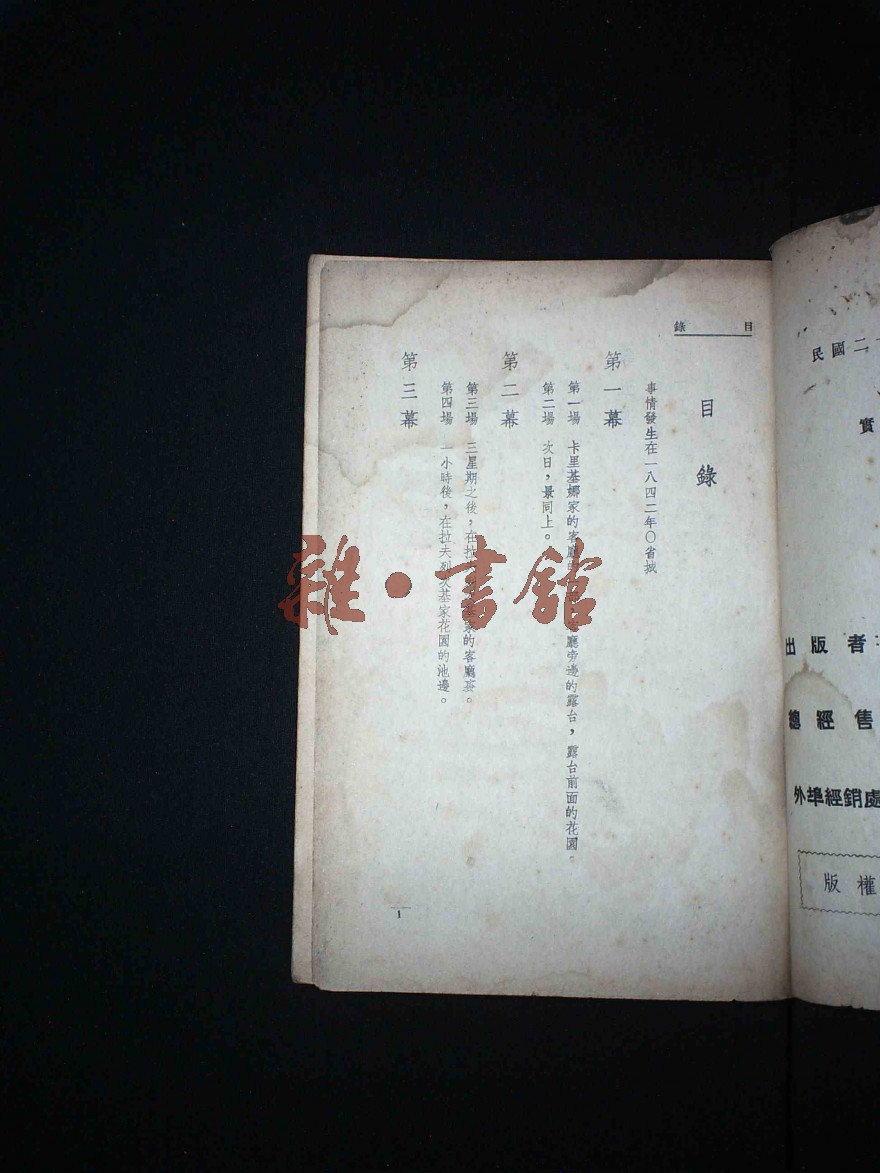 民國二
實
出版者
總經售
外埠經銷處
版權
目錄
目錄
事情發生在一八四二年〇省城
第一幕
第一場 卡里基娜家的客廳 廳旁邊的露台，露台前面的花園。
第二場 次日，景同上。
第二幕
第三場 三星期之後，在拉 基家的客廳裏。
第四場 一小時後，在拉夫列次基家花園的池邊。
第三幕
1
雜·書館